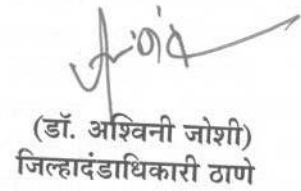 (डॉ. अश्विनी जोशी)
जिल्हादंडाधिकारी ठाणे